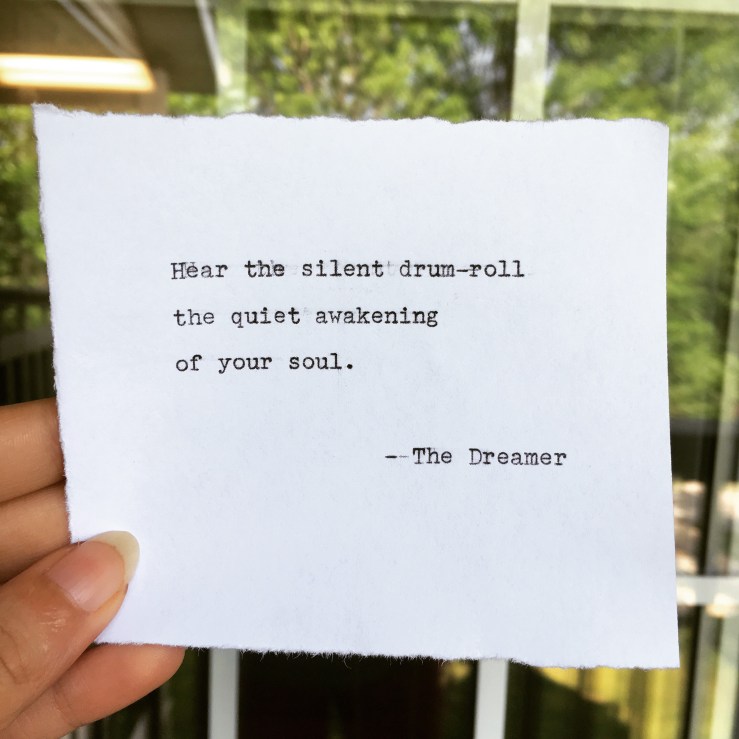 Hear the silent drum-roll
the quiet awakening
of your soul.
--The Dreamer